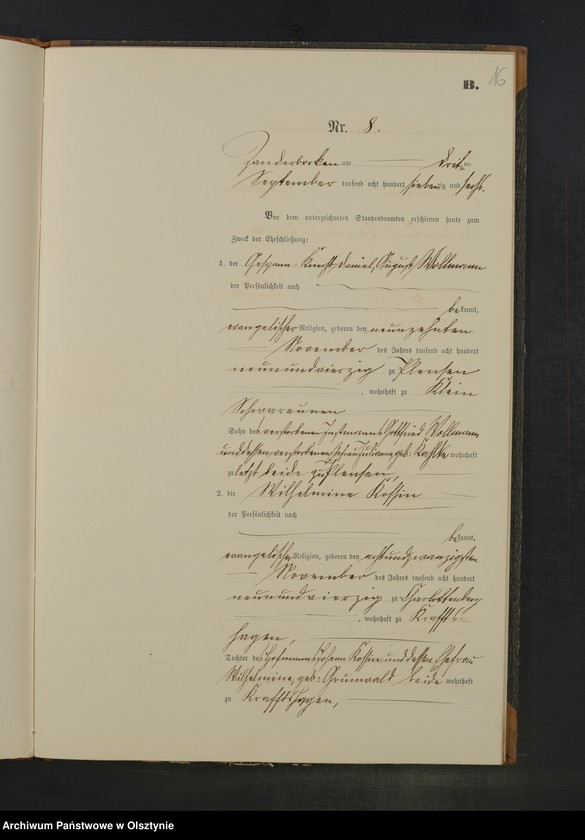 16
B.
Nr. 8.
Zanderborken am drit=ten
September tausend acht hundert siebenzig und sechs.
Vor dem unterzeichneten Standesbeamten erschienen heute zum
Zweck der Eheschließung:
1. der Gespann-Knecht Daniel, August Wollmann
der Persönlichkeit nach
bekannt,
evangelischer Religion, geboren den neunzehnten
November des Jahres tausend acht hundert
neunundvierzig zu Plensen
, wohnhaft zu Klein
Schwaraunen
Sohn des verstorbenen Instmanns Gottfried Wollmann
und dessen verstorbenen Ehefrau geb: Kahlke wohnhaft
zuletzt beide zu Plensen,
2. die Wilhelmine Kossin
der Persönlichkeit nach
bekannt,
evangelischer Religion, geboren den achtundzwanzigsten
November des Jahres tausend acht hundert
neunundvierzig zu Charlottenberg
, wohnhaft zu Kraffts=
hagen,
Tochter des Hofmanns Johann Kossin, und dessen Ehefrau
Wilhelmine, geb: Grunwald beide wohnhaft
zu Krafftshagen,
Archiwum Państwowe w Olsztynie